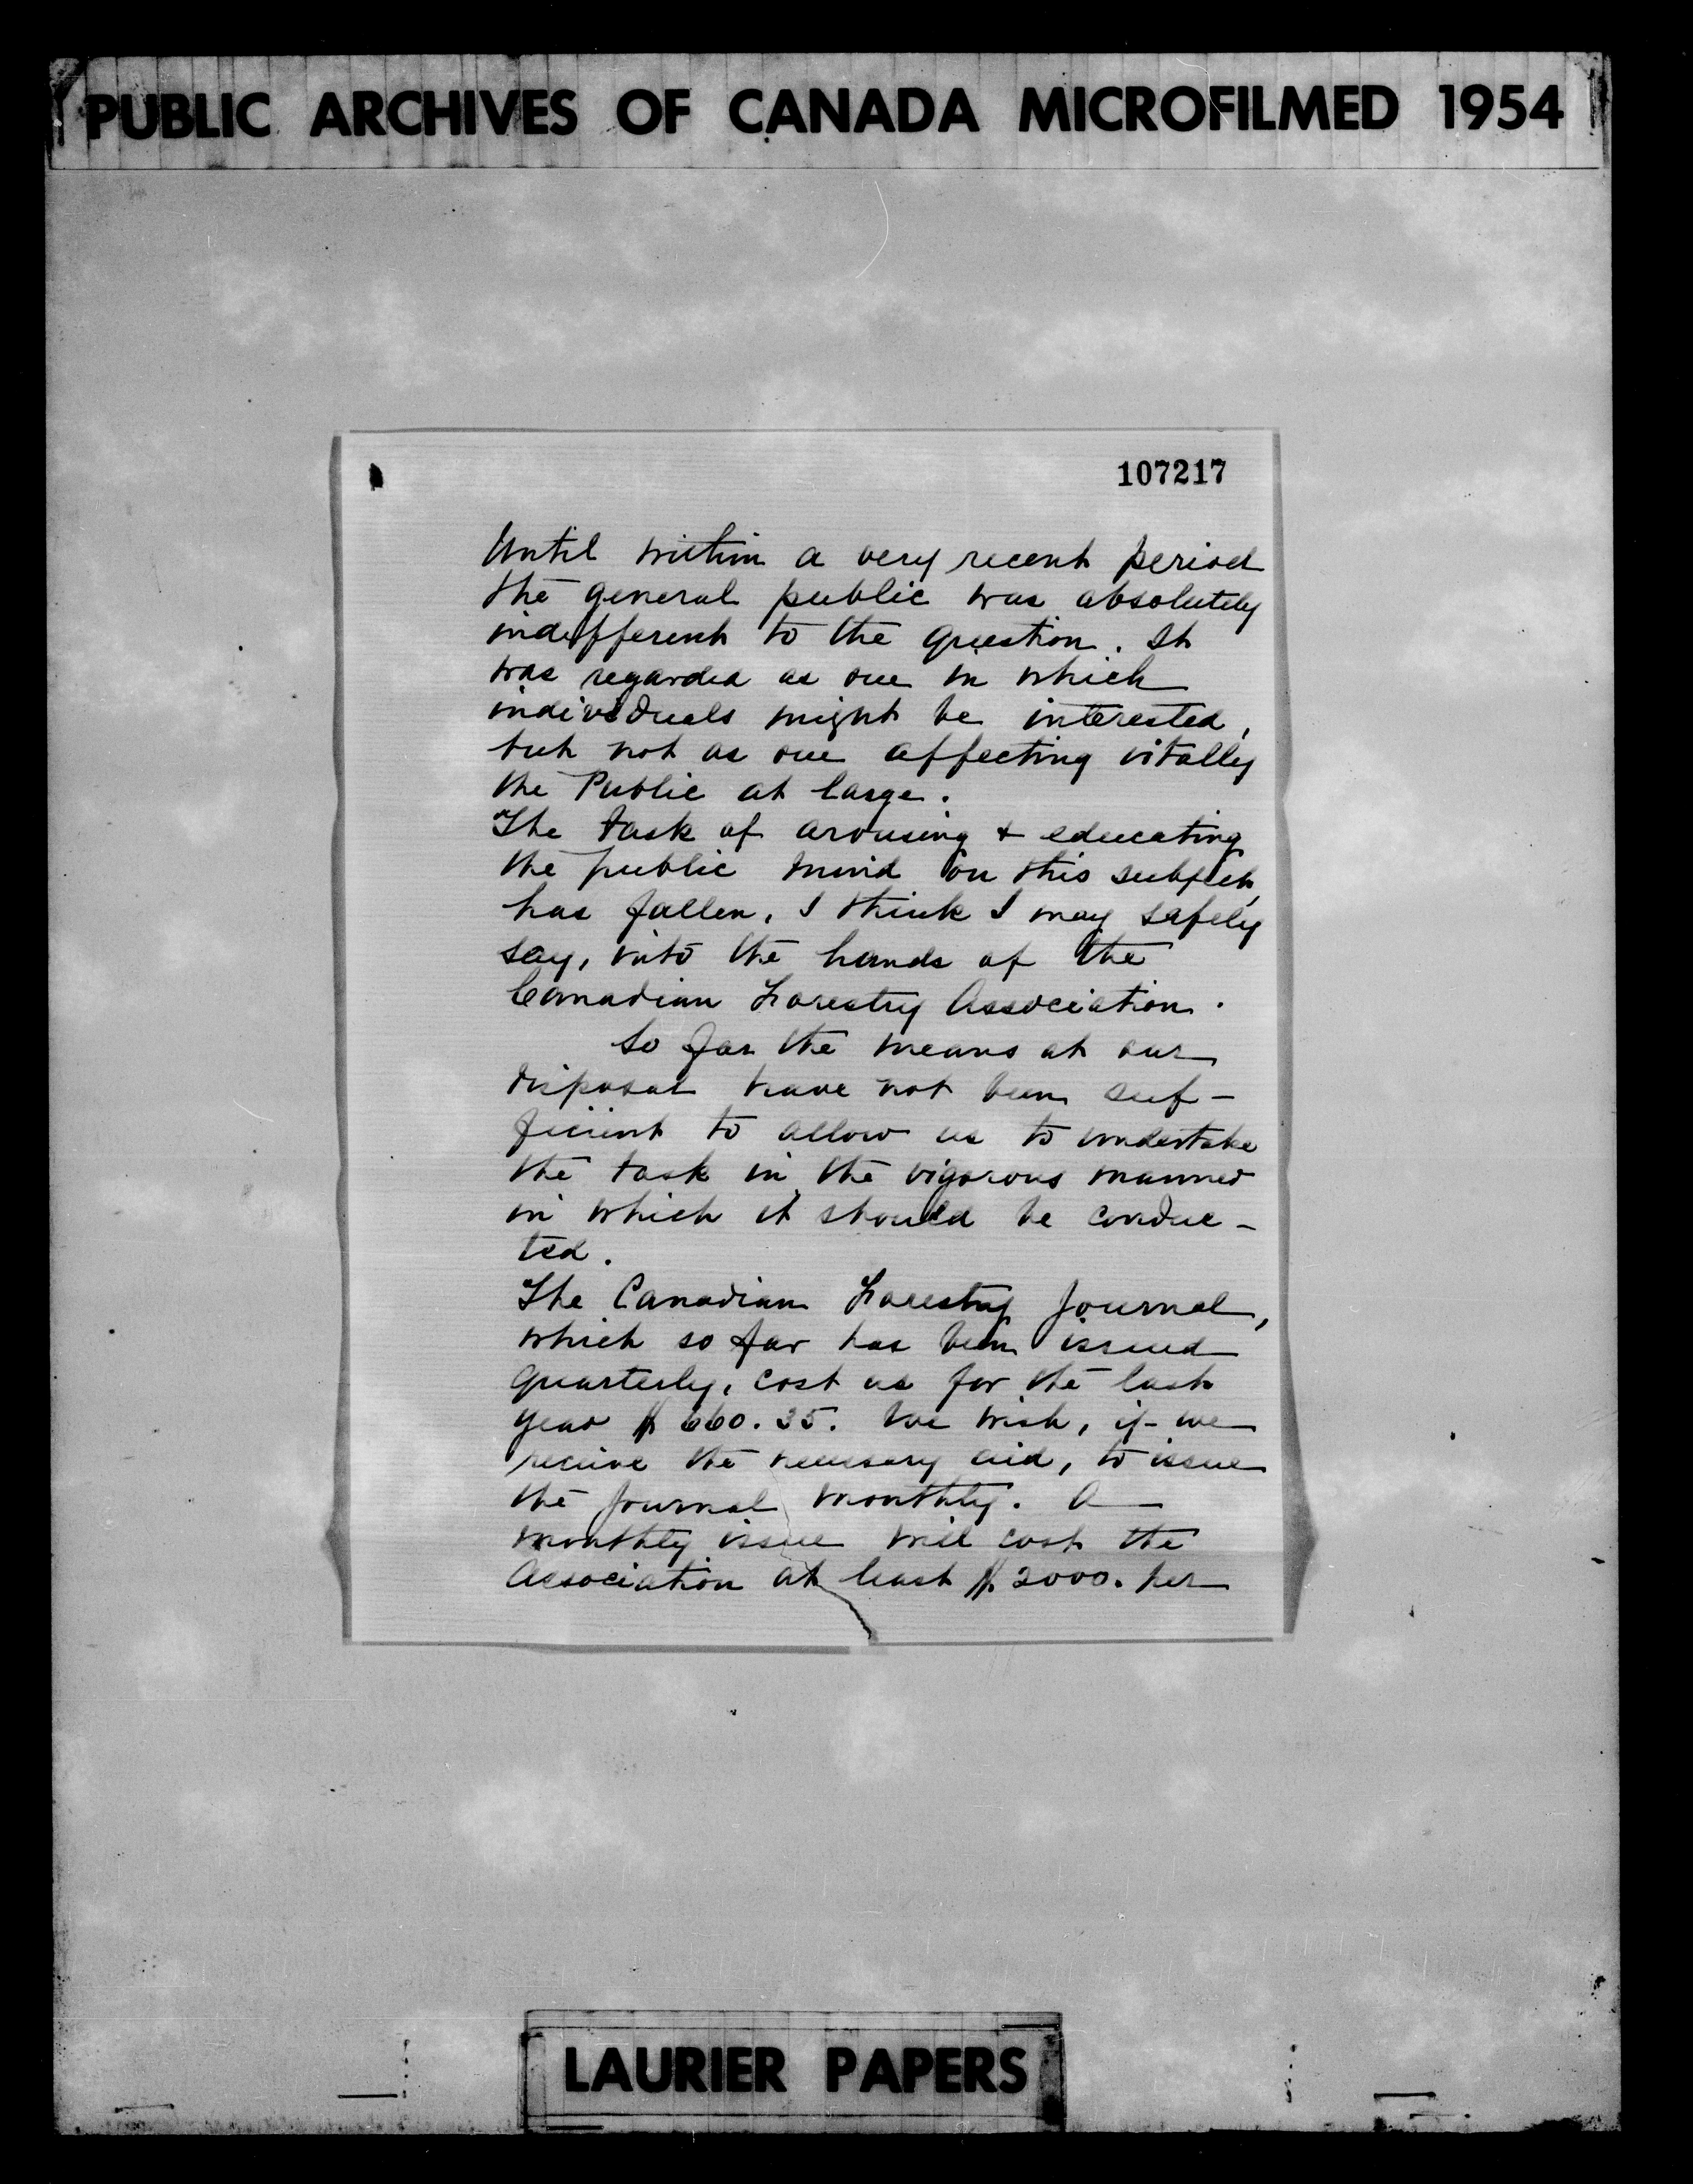 PUBLIC ARCHIVES OF CANADA MICROFILMED 1954
107217
Until within a very recent period
the general public was absolutely
indifferent to the question. It
was regarded as one in which
individuals might be interested,
but not as one affecting vitally
the Public at large.
The task of arousing & educating
the public mind on this subject,
has fallen, I think I may safely
say, into the hands of the
Canadian Forestry Association.
So far the means at our
disposal have not been suf-
ficient to allow us to undertake
the task in the vigorous manner
in which it should be conduc-
ted.
The Canadian Forestry Journal,
which so far has been issued
quarterly, cost us for the last
year $660.35. We wish, if we
receive the necessary aid, to issue
the Journal monthly. A
monthly issue will cost the
Association at least $2000. per
LAURIER PAPERS